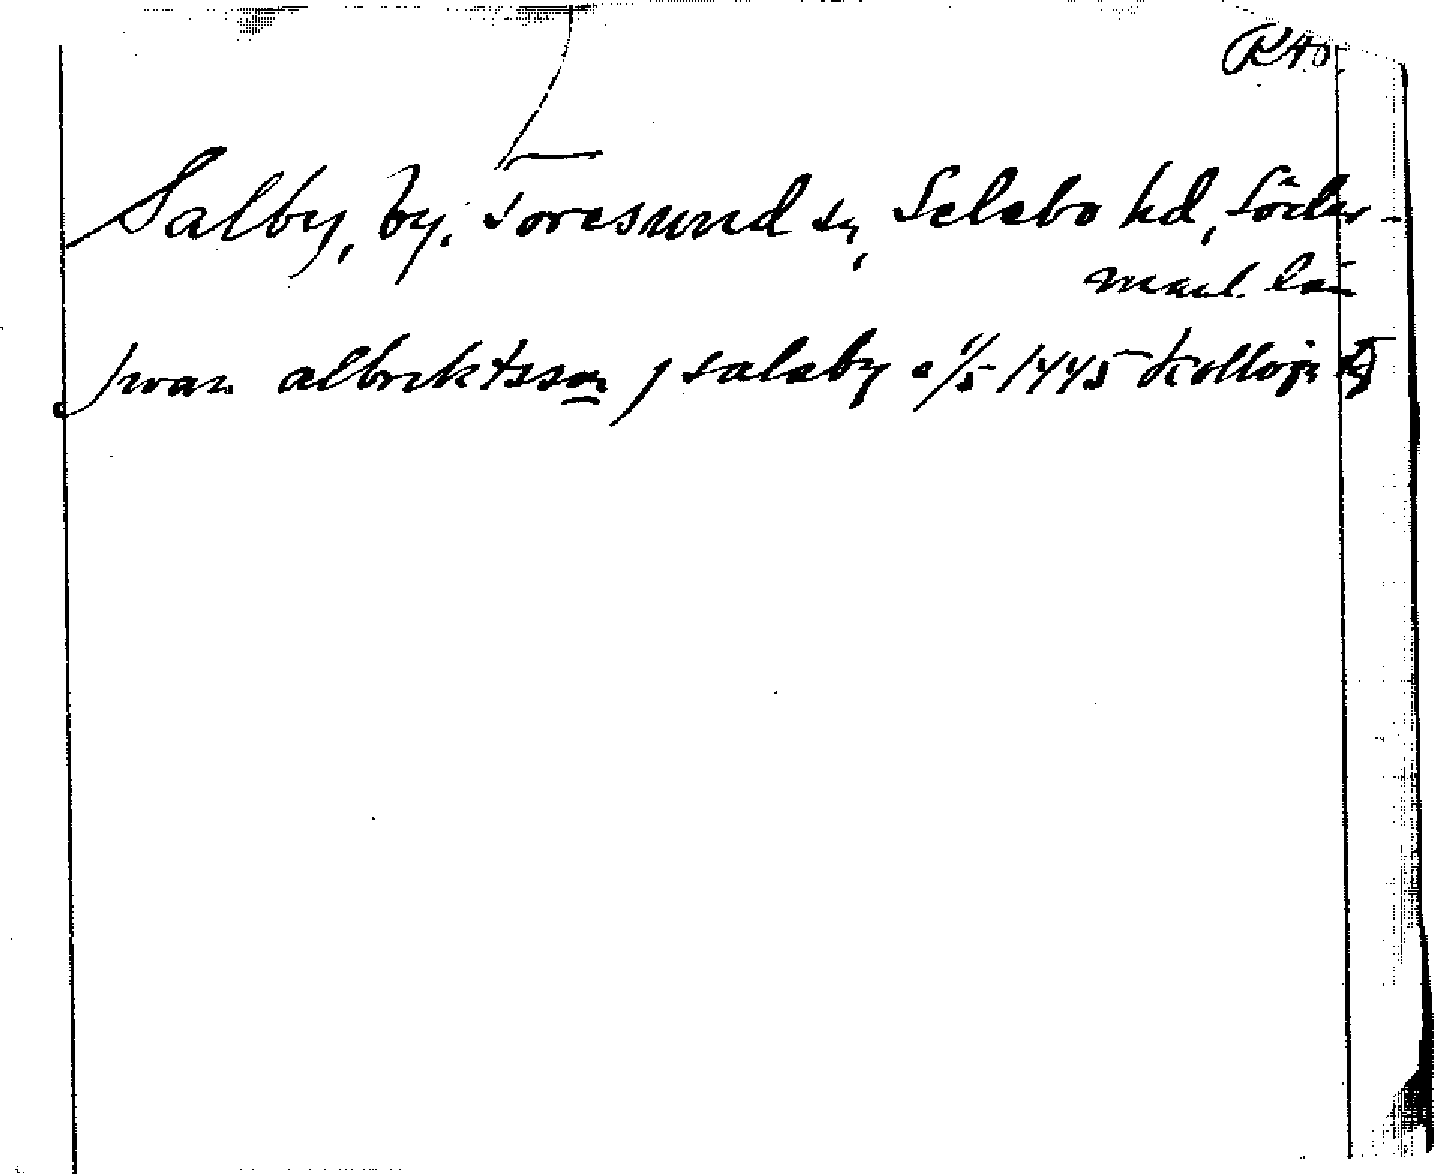 RAö.
Salby, by. Toresund sn, Selebo hd, Söder-
manl. län
jwan albrektsson j saleby 1/5 1445